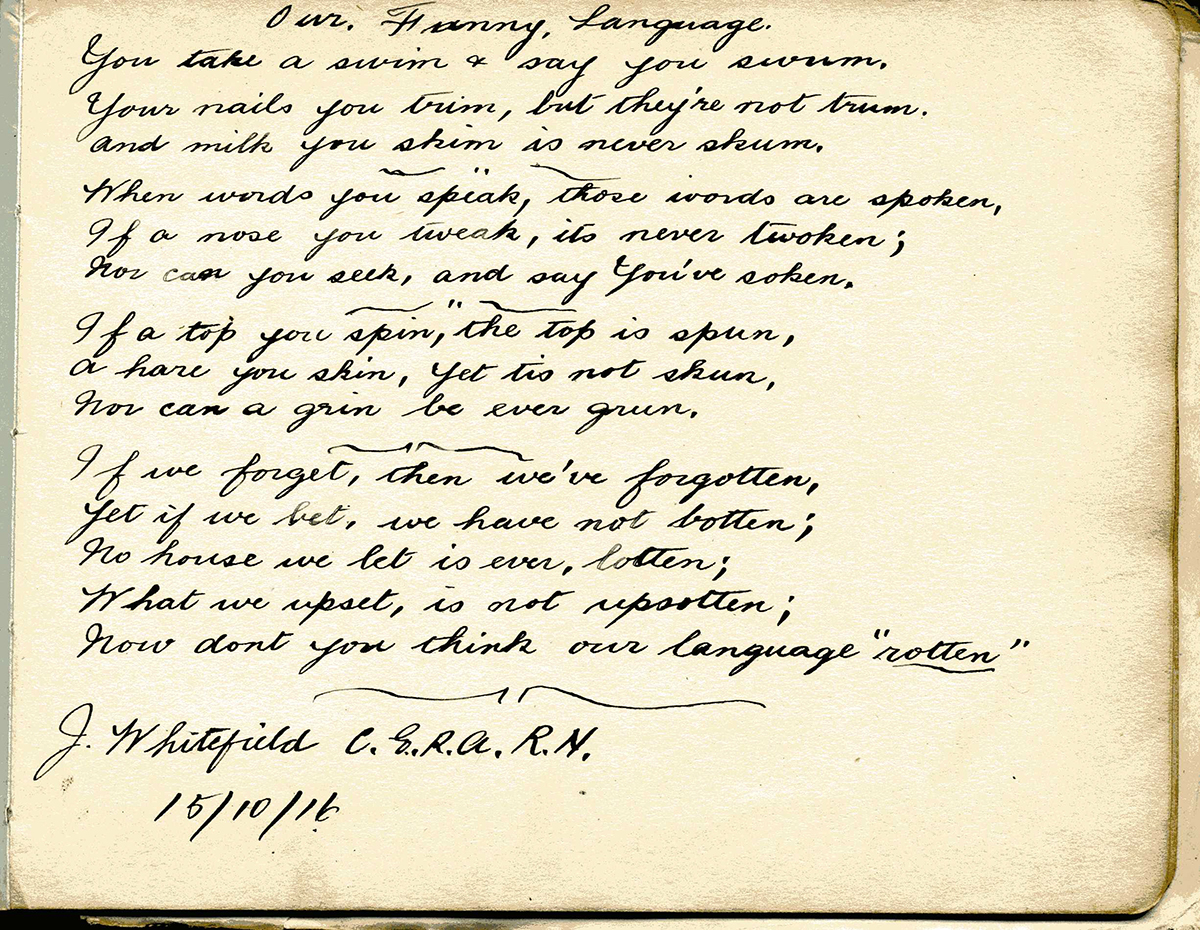 Our. Funny, Language.
You take a swim & say you swum.
Your nails you trim, but they're not trum.
And milk you skim is never skum.
When words you speak, those words are spoken,
If a nose you tweak, its never twoken;
Nor can you seek, and say You've soken.
If a top you spin, the top is spun,
A hare you skin, Yet tis not skun,
Nor can a grin be ever grun.
If we forget, then we've forgotten,
Yet if we bet, we have not botten;
No house we let is ever, lotten;
What we upset, is not upsotten;
Now dont you think our language "rotten"
J. Whitefield C.E.R.A. R.N.
15/10/16